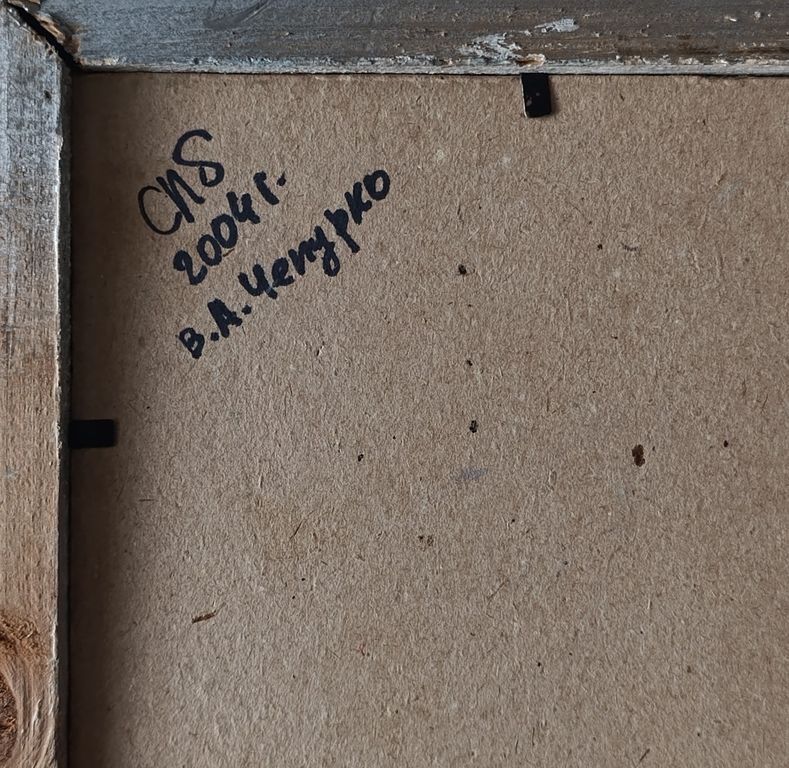 СПб
2004 г.
В.А. Чепурко